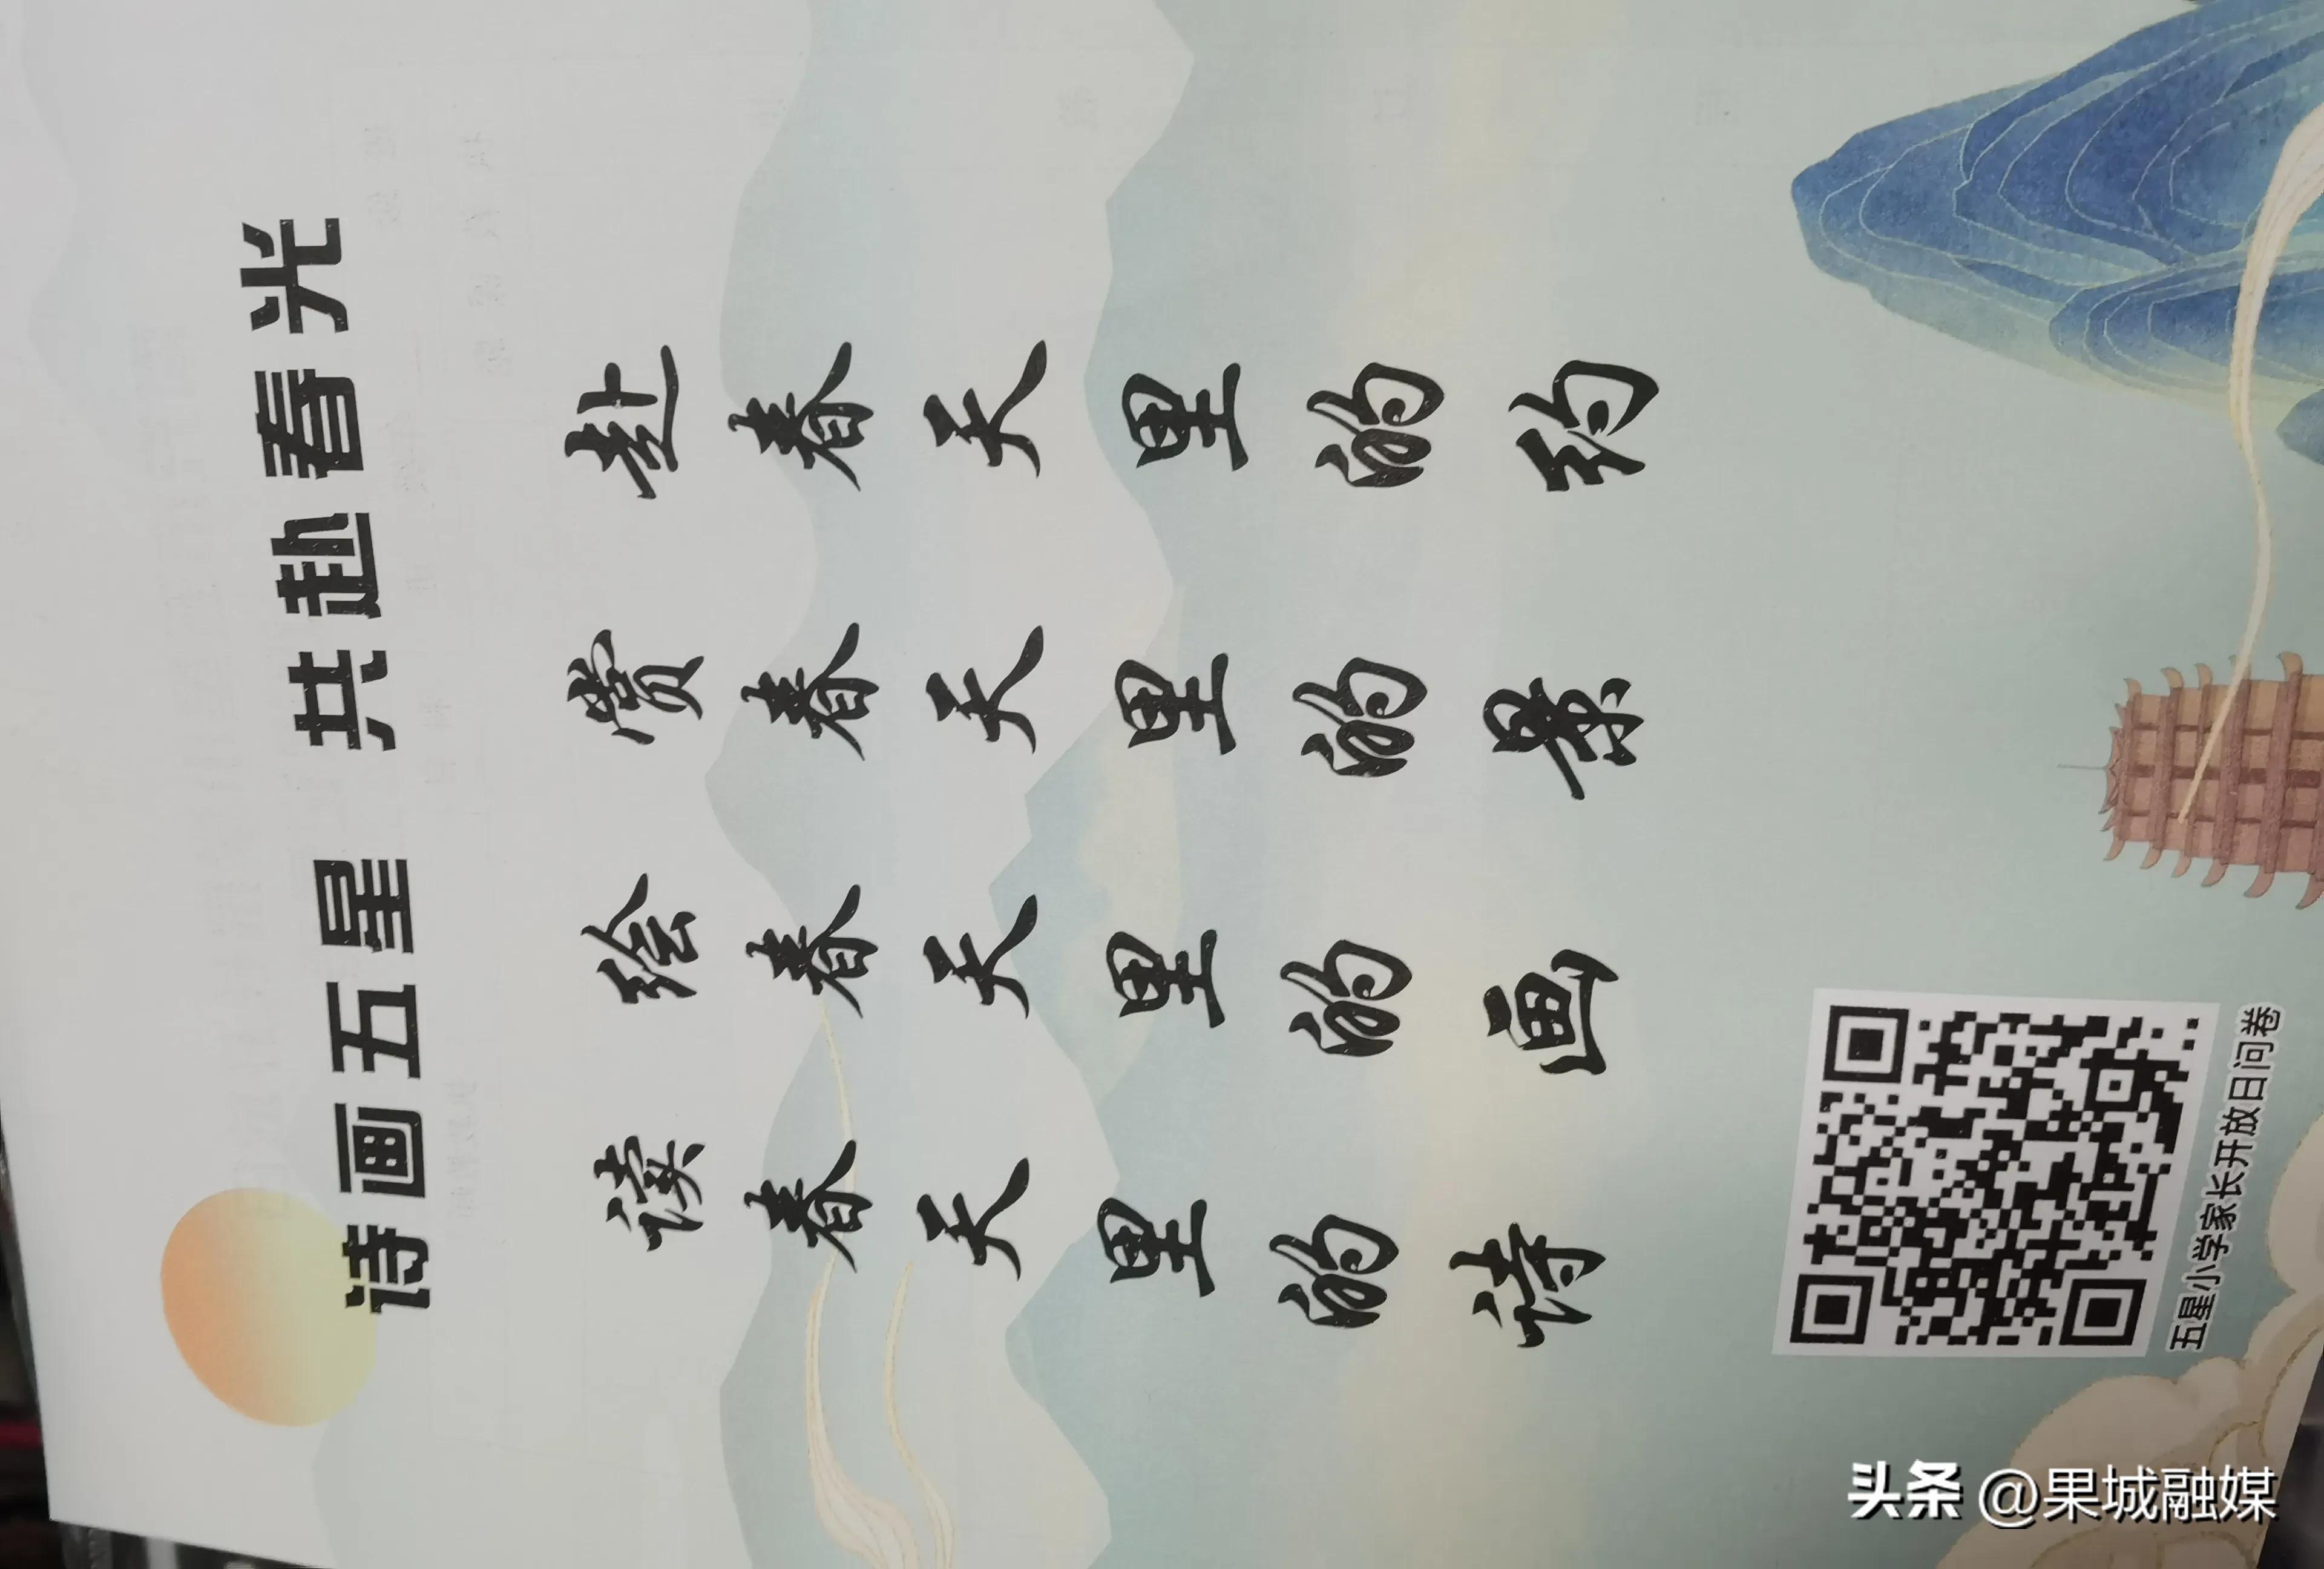 诗画五星 共赴春光
读春天里的诗
绘春天里的画
赏春天里的景
赴春天里的约
五星小学家长开放日问卷
头条 @果城融媒